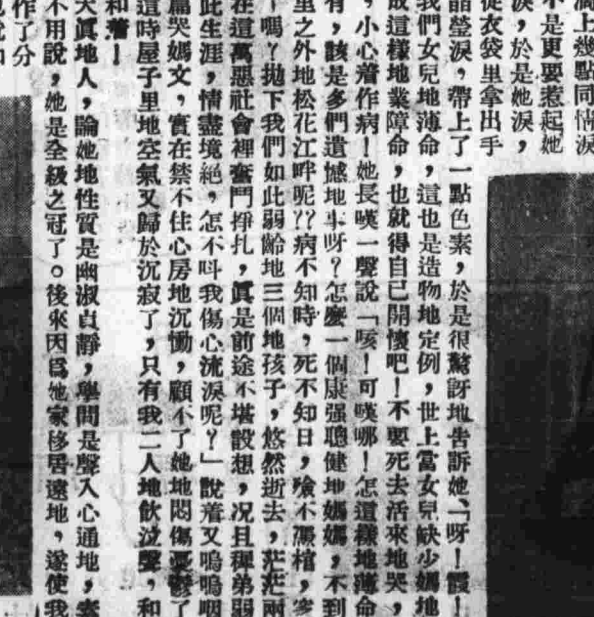 滴上幾點同情淚
不是更要惹起她
淚，於是她淚，
從衣袋里拿出手
晶瑩淚，帶上了一點色素，於是很驚訝地告訴她、「呀！霞！
我們女兒地薄命，這也是造物地定例，世上當女兒缺少媽地
成這樣地業障命，也就得自已開懷吧！不要死去活來地哭，
，小心着作病！她長嘆一聲說「咳！可嘆哪！怎這樣地薄命
有，該是多們遺憾地事呀？怎麼一個康强聰健地媽媽，不到
里之外地松花江畔呢??病不知時，死不知日，殮不憑棺，
！嗎？拋下我們如此弱齡地三個地孩子，悠然逝去，茫茫兩
在這萬惡社會裡奮鬥掙扎，眞是前途不堪設想，况且穉弟弱
此生涯，情盡境絕，怎不呌我傷心流淚呢？」說着又嗚嗚咽
篇哭媽文，實在禁不住心房地沉慟，顧不了她地悶傷憂鬱了
這時屋子里地空氣又歸於沉寂了，只有我二人地飲泣聲，和
和着！
天眞地人，論她地性質是幽淑貞靜，學問是聲入心通地，素
不用說，她是全級之冠了。後來因爲她家移居遠地，遂使我
作了分